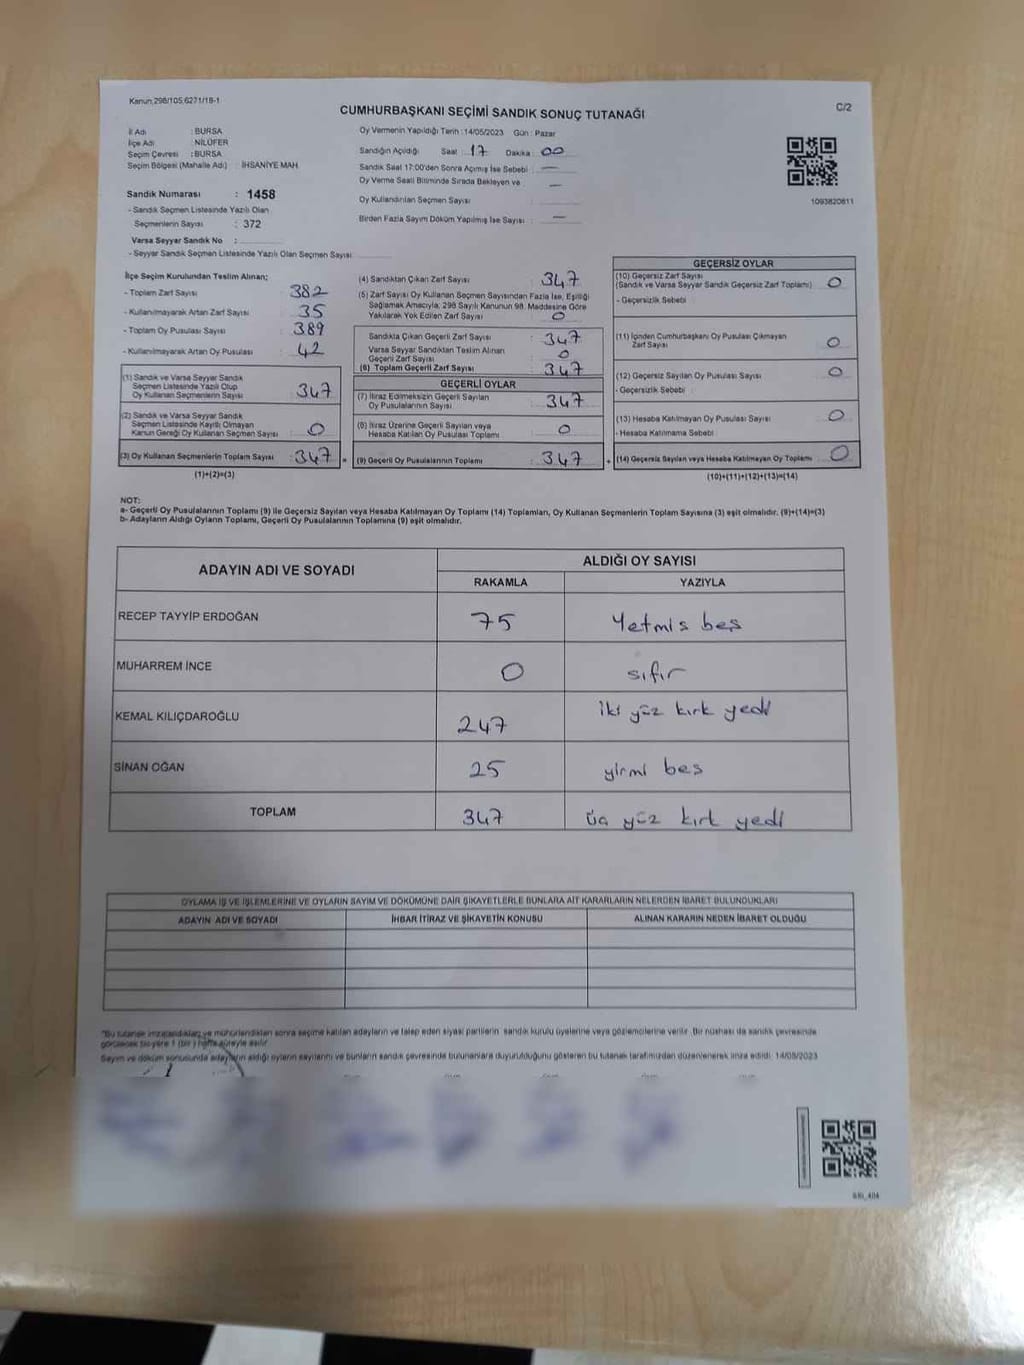 Kanun:298/105,6271/18-1
CUMHURBAŞKANI SEÇİMİ SANDIK SONUÇ TUTANAĞI
C/2
İl Adı : BURSA
İlçe Adı : NİLÜFER
Seçim Çevresi : BURSA
Seçim Bölgesi (Mahalle Adı) : İHSANİYE MAH.
Sandık Numarası : 1458
- Sandık Seçmen Listesinde Yazılı Olan
Seçmenlerin Sayısı : 372
Varsa Seyyar Sandık No :
- Seyyar Sandık Seçmen Listesinde Yazılı Olan Seçmen Sayısı
Oy Vermenin Yapıldığı Tarih :14/05/2023 Gün : Pazar
Sandığın Açıldığı Saat : 17 Dakika : 00
Sandık Saat 17:00'den Sonra Açılmış İse Sebebi : —
Oy Verme Saati Bitiminde Sırada Bekleyen ve —
Oy Kullandırılan Seçmen Sayısı
Birden Fazla Sayım Döküm Yapılmış İse Sayısı : —
1093820811
İlçe Seçim Kurulundan Teslim Alınan;
- Toplam Zarf Sayısı : 382
- Kullanılmayarak Artan Zarf Sayısı : 35
- Toplam Oy Pusulası Sayısı : 389
- Kullanılmayarak Artan Oy Pusulası : 42
(1) Sandık ve Varsa Seyyar Sandık
Seçmen Listesinde Yazılı Olup
Oy Kullanan Seçmenlerin Sayısı : 347
(2) Sandık ve Varsa Seyyar Sandık
Seçmen Listesinde Kayıtlı Olmayan
Kanun Gereği Oy Kullanan Seçmen Sayısı : 0
(3) Oy Kullanan Seçmenlerin Toplam Sayısı : 347
(1)+(2)=(3)
(4) Sandıktan Çıkan Zarf Sayısı : 347
(5) Zarf Sayısı Oy Kullanan Seçmen Sayısından Fazla İse, Eşitliği
Sağlamak Amacıyla, 298 Sayılı Kanunun 98. Maddesine Göre
Yakılarak Yok Edilen Zarf Sayısı : 0
Sandıkta Çıkan Geçerli Zarf Sayısı : 347
Varsa Seyyar Sandıktan Teslim Alınan
Geçerli Zarf Sayısı : 0
(6) Toplam Geçerli Zarf Sayısı : 347
GEÇERLİ OYLAR
(7) İtiraz Edilmeksizin Geçerli Sayılan
Oy Pusulalarının Sayısı : 347
(8) İtiraz Üzerine Geçerli Sayılan veya
Hesaba Katılan Oy Pusulası Toplamı : 0
= (9) Geçerli Oy Pusulalarının Toplamı : 347
GEÇERSİZ OYLAR
(10) Geçersiz Zarf Sayısı
(Sandık ve Varsa Seyyar Sandık Geçersiz Zarf Toplamı) : 0
- Geçersizlik Sebebi :
(11) İçinden Cumhurbaşkanı Oy Pusulası Çıkmayan
Zarf Sayısı : 0
(12) Geçersiz Sayılan Oy Pusulası Sayısı : 0
- Geçersizlik Sebebi :
(13) Hesaba Katılmayan Oy Pusulası Sayısı : 0
- Hesaba Katılmama Sebebi :
+ (14) Geçersiz Sayılan veya Hesaba Katılmayan Oy Toplamı : 0
(10)+(11)+(12)+(13)=(14)
NOT:
a- Geçerli Oy Pusulalarının Toplamı (9) ile Geçersiz Sayılan veya Hesaba Katılmayan Oy Toplamı (14) Toplamları, Oy Kullanan Seçmenlerin Toplam Sayısına (3) eşit olmalıdır. (9)+(14)=(3)
b- Adayların Aldığı Oyların Toplamı, Geçerli Oy Pusulalarının Toplamına (9) eşit olmalıdır.
ADAYIN ADI VE SOYADI
ALDIĞI OY SAYISI
RAKAMLA YAZIYLA
RECEP TAYYİP ERDOĞAN 75 Yetmis beş
MUHARREM İNCE 0 sıfır
KEMAL KILIÇDAROĞLU 247 iki yüz kırk yedi
SİNAN OĞAN 25 yirmi bes
TOPLAM 347 üç yüz kırk yedi
OYLAMA İŞ VE İŞLEMLERİNE VE OYLARIN SAYIM VE DÖKÜMÜNE DAİR ŞİKAYETLERLE BUNLARA AİT KARARLARIN NELERDEN İBARET BULUNDUKLARI
ADAYIN ADI VE SOYADI İHBAR İTİRAZ VE ŞİKAYETİN KONUSU ALINAN KARARIN NEDEN İBARET OLDUĞU
*Bu tutanak imzalandıktan ve mühürlendikten sonra seçime katılan adayların ve talep eden siyasi partilerin sandık kurulu üyelerine veya gözlemcilerine verilir. Bir nüshası da sandık çevresinde
görülecek bir yere 1 (bir) hafta süreyle asılır.
Sayım ve döküm sonucunda adayların aldığı oyların sayılarını ve bunların sandık çevresinde bulunanlara duyurulduğunu gösteren bu tutanak tarafımızdan düzenlenerek imza edildi. 14/05/2023